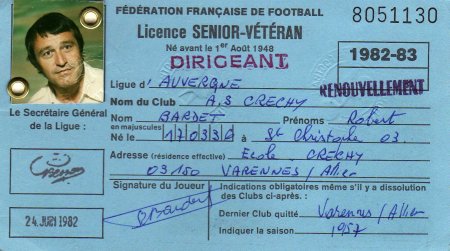 FÉDÉRATION FRANÇAISE DE FOOTBALL 8051130
Licence SENIOR-VÉTÉRAN
Né avant le 1er Août 1948
1982-83
DIRIGEANT
RENOUVELLEMENT
Ligue d'AUVERGNE
Nom du Club A.S CRECHY
Nom BARDET Prénoms Robert
en majuscules
Le Secrétaire Général
de la Ligue :
Né le 170336 à St Christophe 03
Adresse (résidence effective) Ecole CRECHY
03150 VARENNES / Allier
Signature du Joueur
Bardet
24 JUIN 1982
Indications obligatoires même s'il y a dissolution
des Clubs ci-après :
Dernier Club quitté Varennes / Allier
Indiquer la saison 1957